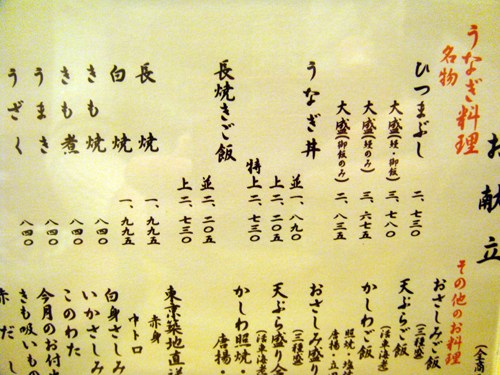 お献立
うなぎ料理
名物
ひつまぶし 二、七三〇
大盛(鰻・御飯) 三、七八〇
大盛(鰻のみ) 三、六七五
大盛(御飯のみ) 二、八三五
うなぎ丼 並 一、八九〇
上 二、二〇五
特上 二、七三〇
長焼きご飯 並 二、二〇五
上 二、七三〇
長焼 一、九九五
白焼 一、九九五
きも焼 八四〇
きも煮 八四〇
うまき 八四〇
うざく 八四〇
その他のお料理
おさしみご飯
(三種盛)
天ぷらご飯
(活車海老
かしわご飯
照焼・塩焼
唐揚・立田
おさしみ盛り
(三種盛)
天ぷら盛り合
(活車海老
かしわ照焼・
唐揚・
東京築地直送
赤身
中トロ
白身さしみ
いかさしみ
このわた
今月のお付出
きも吸いもの
赤だし